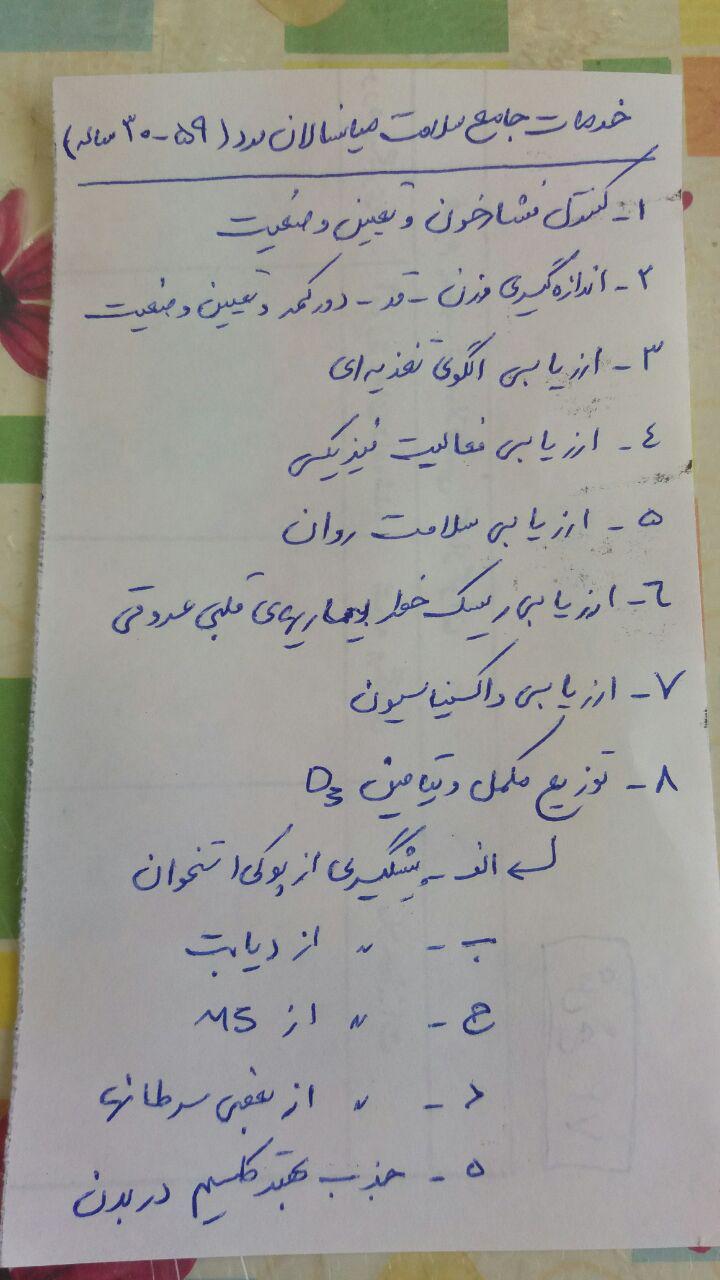 خدمات جامع سلامت میانسالان مرد (۵۹-۳۰ ساله)
۱- کنترل فشارخون و تعیین وضعیت
۲- اندازه گیری وزن - قد - دورکمر و تعیین وضعیت
۳- ارزیابی الگوی تغذیه ای
۴- ارزیابی فعالیت فیزیکی
۵- ارزیابی سلامت روان
۶- ارزیابی ریسک خطر بیماریهای قلبی عروقی
۷- ارزیابی واکسیناسیون
۸- توزیع مکمل ویتامین D3
الف - پیشگیری از پوکی استخوان
ب -〃 از دیابت
ج - 〃 از MS
د - 〃 از بعضی سرطانها
ه - جذب بهتر کلسیم در بدن